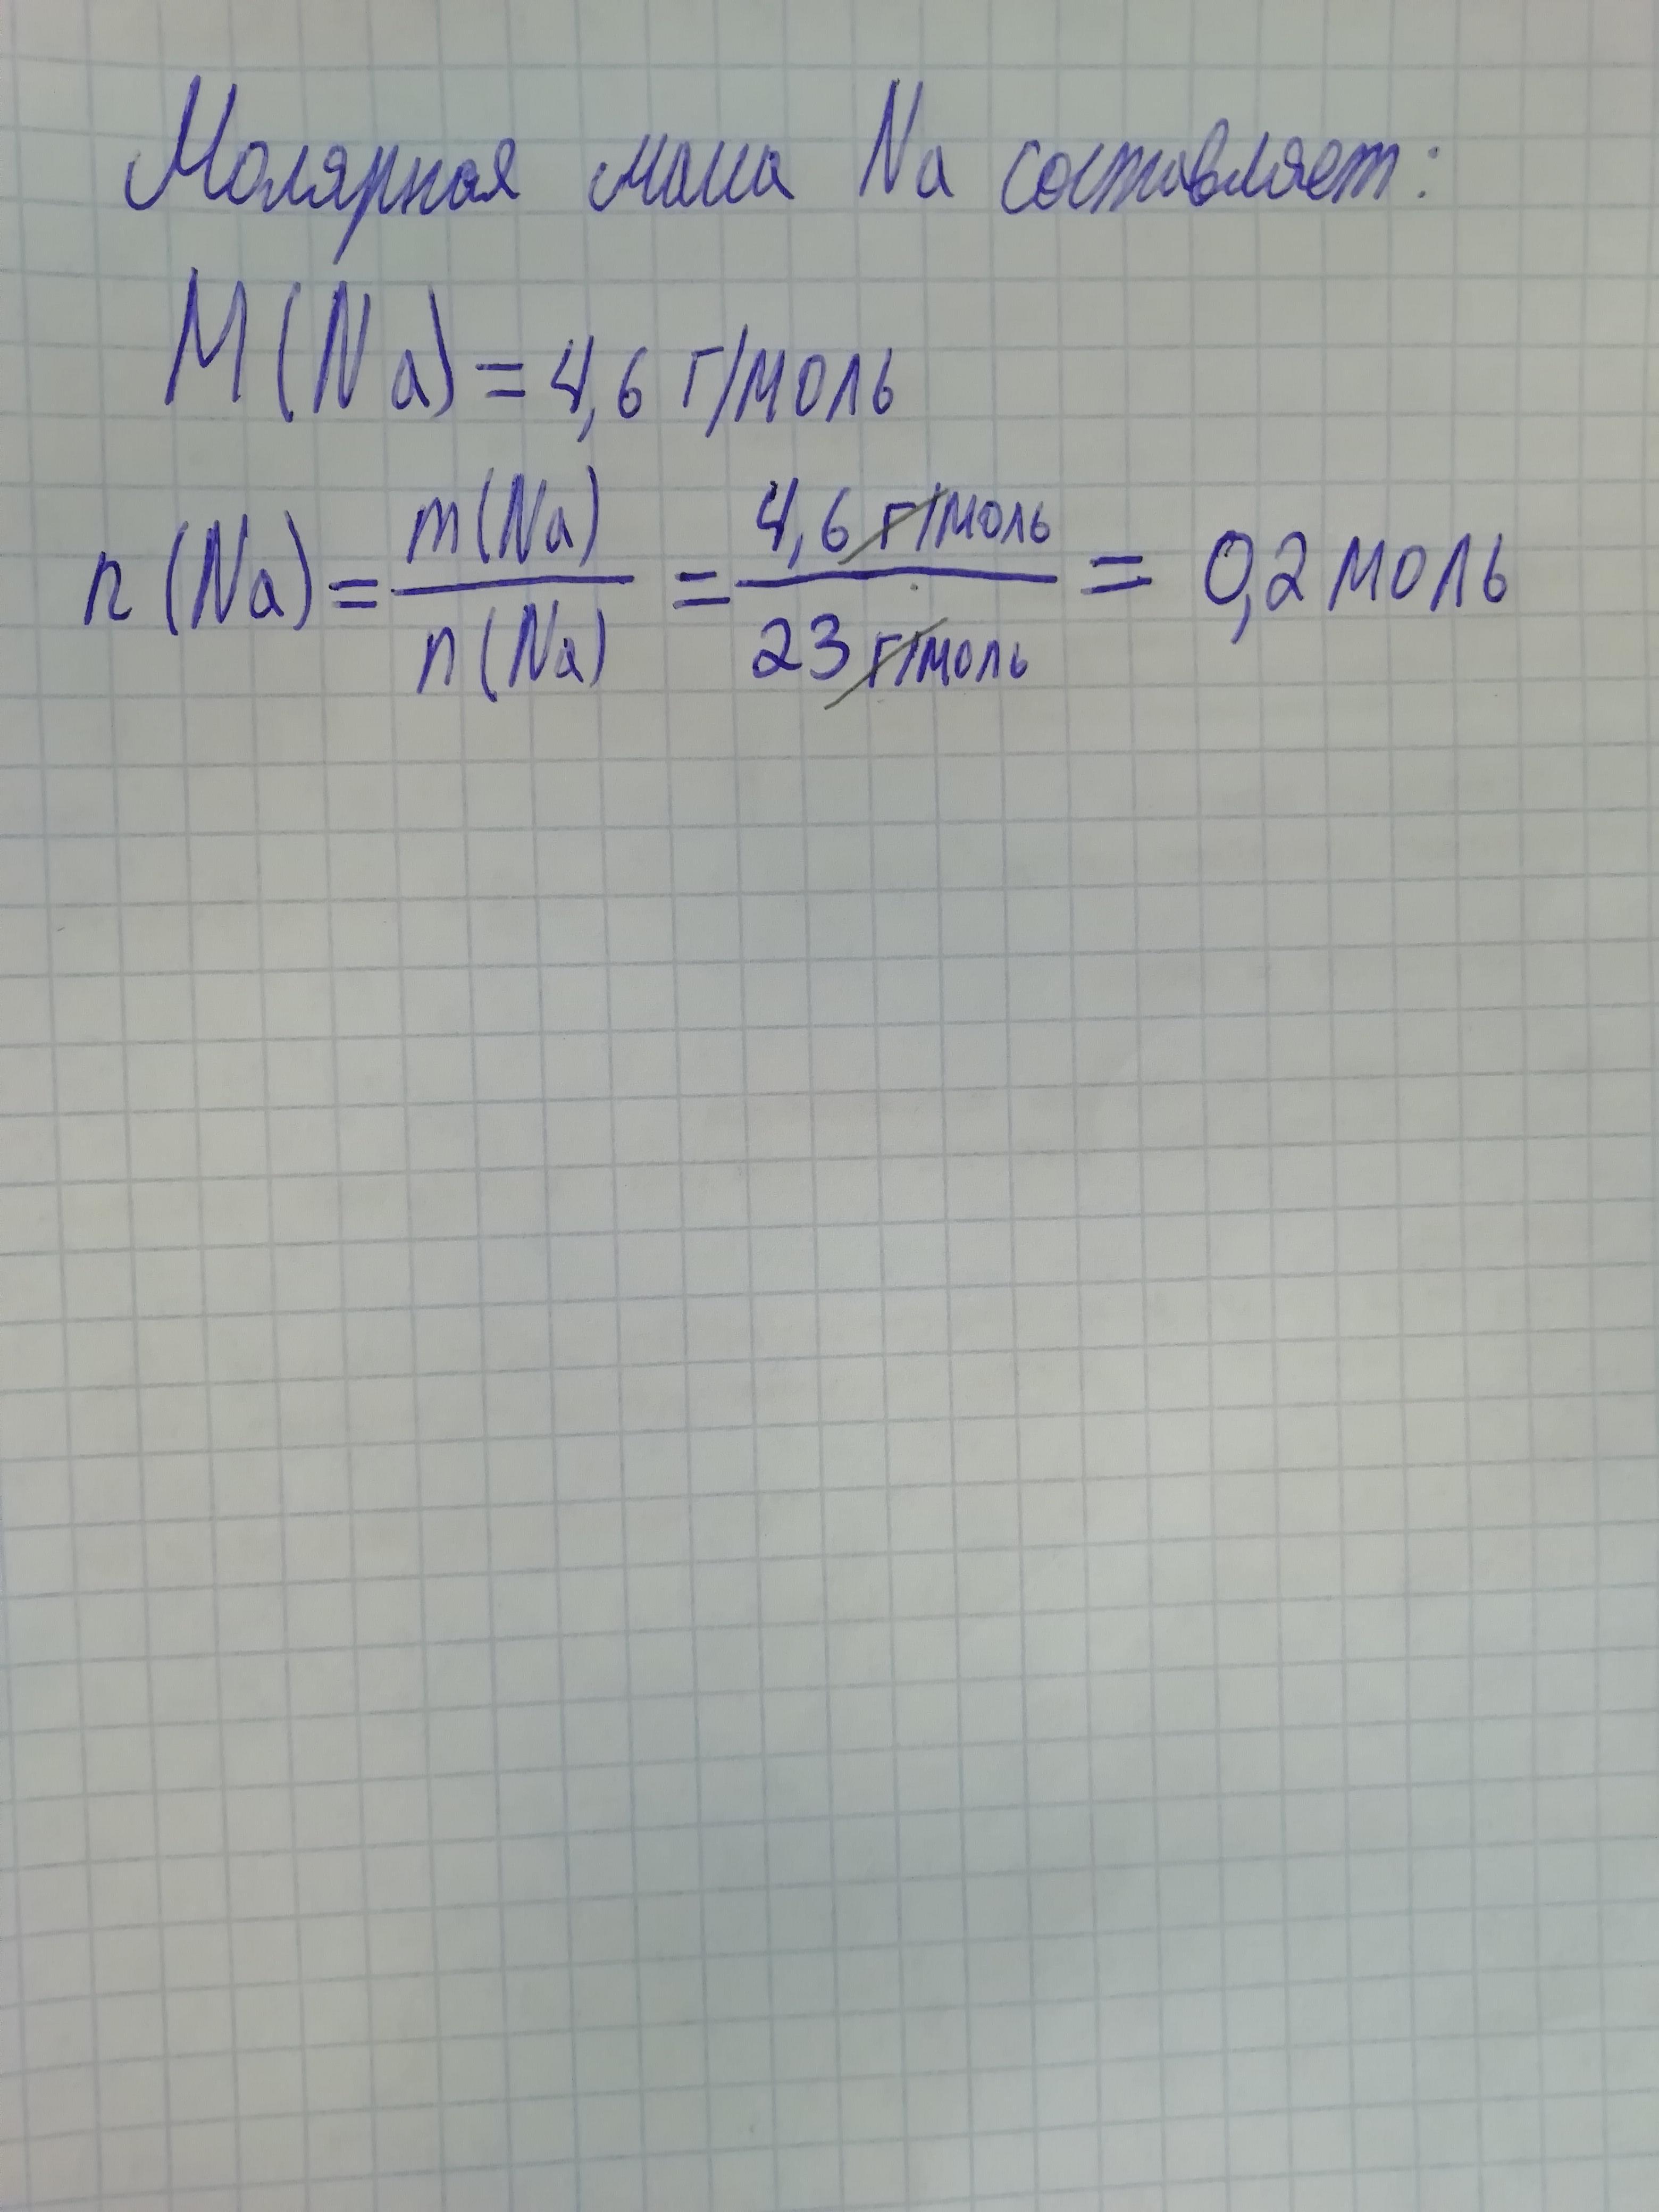 Молярная масса Na составляет:
M(Na) = 4,6 г/моль
n(Na) = m(Na)/n(Na) = 4,6 г/моль / 23 г/моль = 0,2 моль